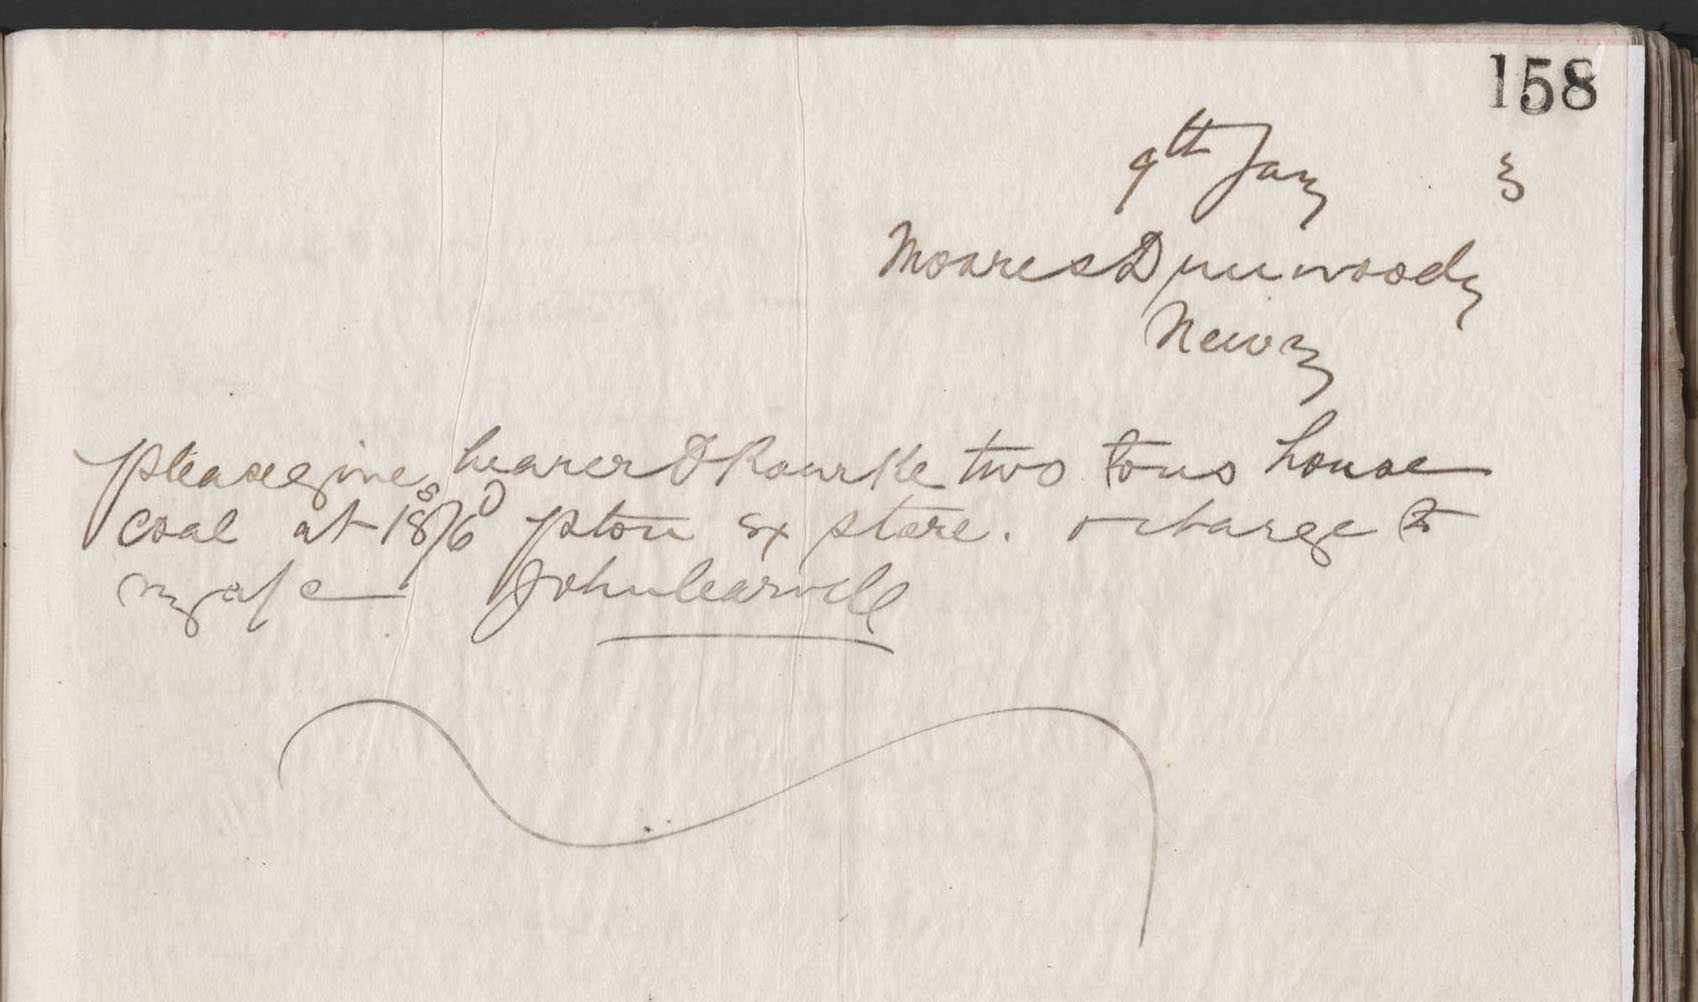 158
9th Jany 3
Moores Dunwoody
Newry
please give bearer O Rourke two tons house
coal at 18s/6D p ton Ex store. & charge to
my a/c John Carvill